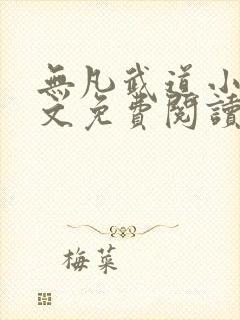 無凡武道小
文免費閱讀
梅菜